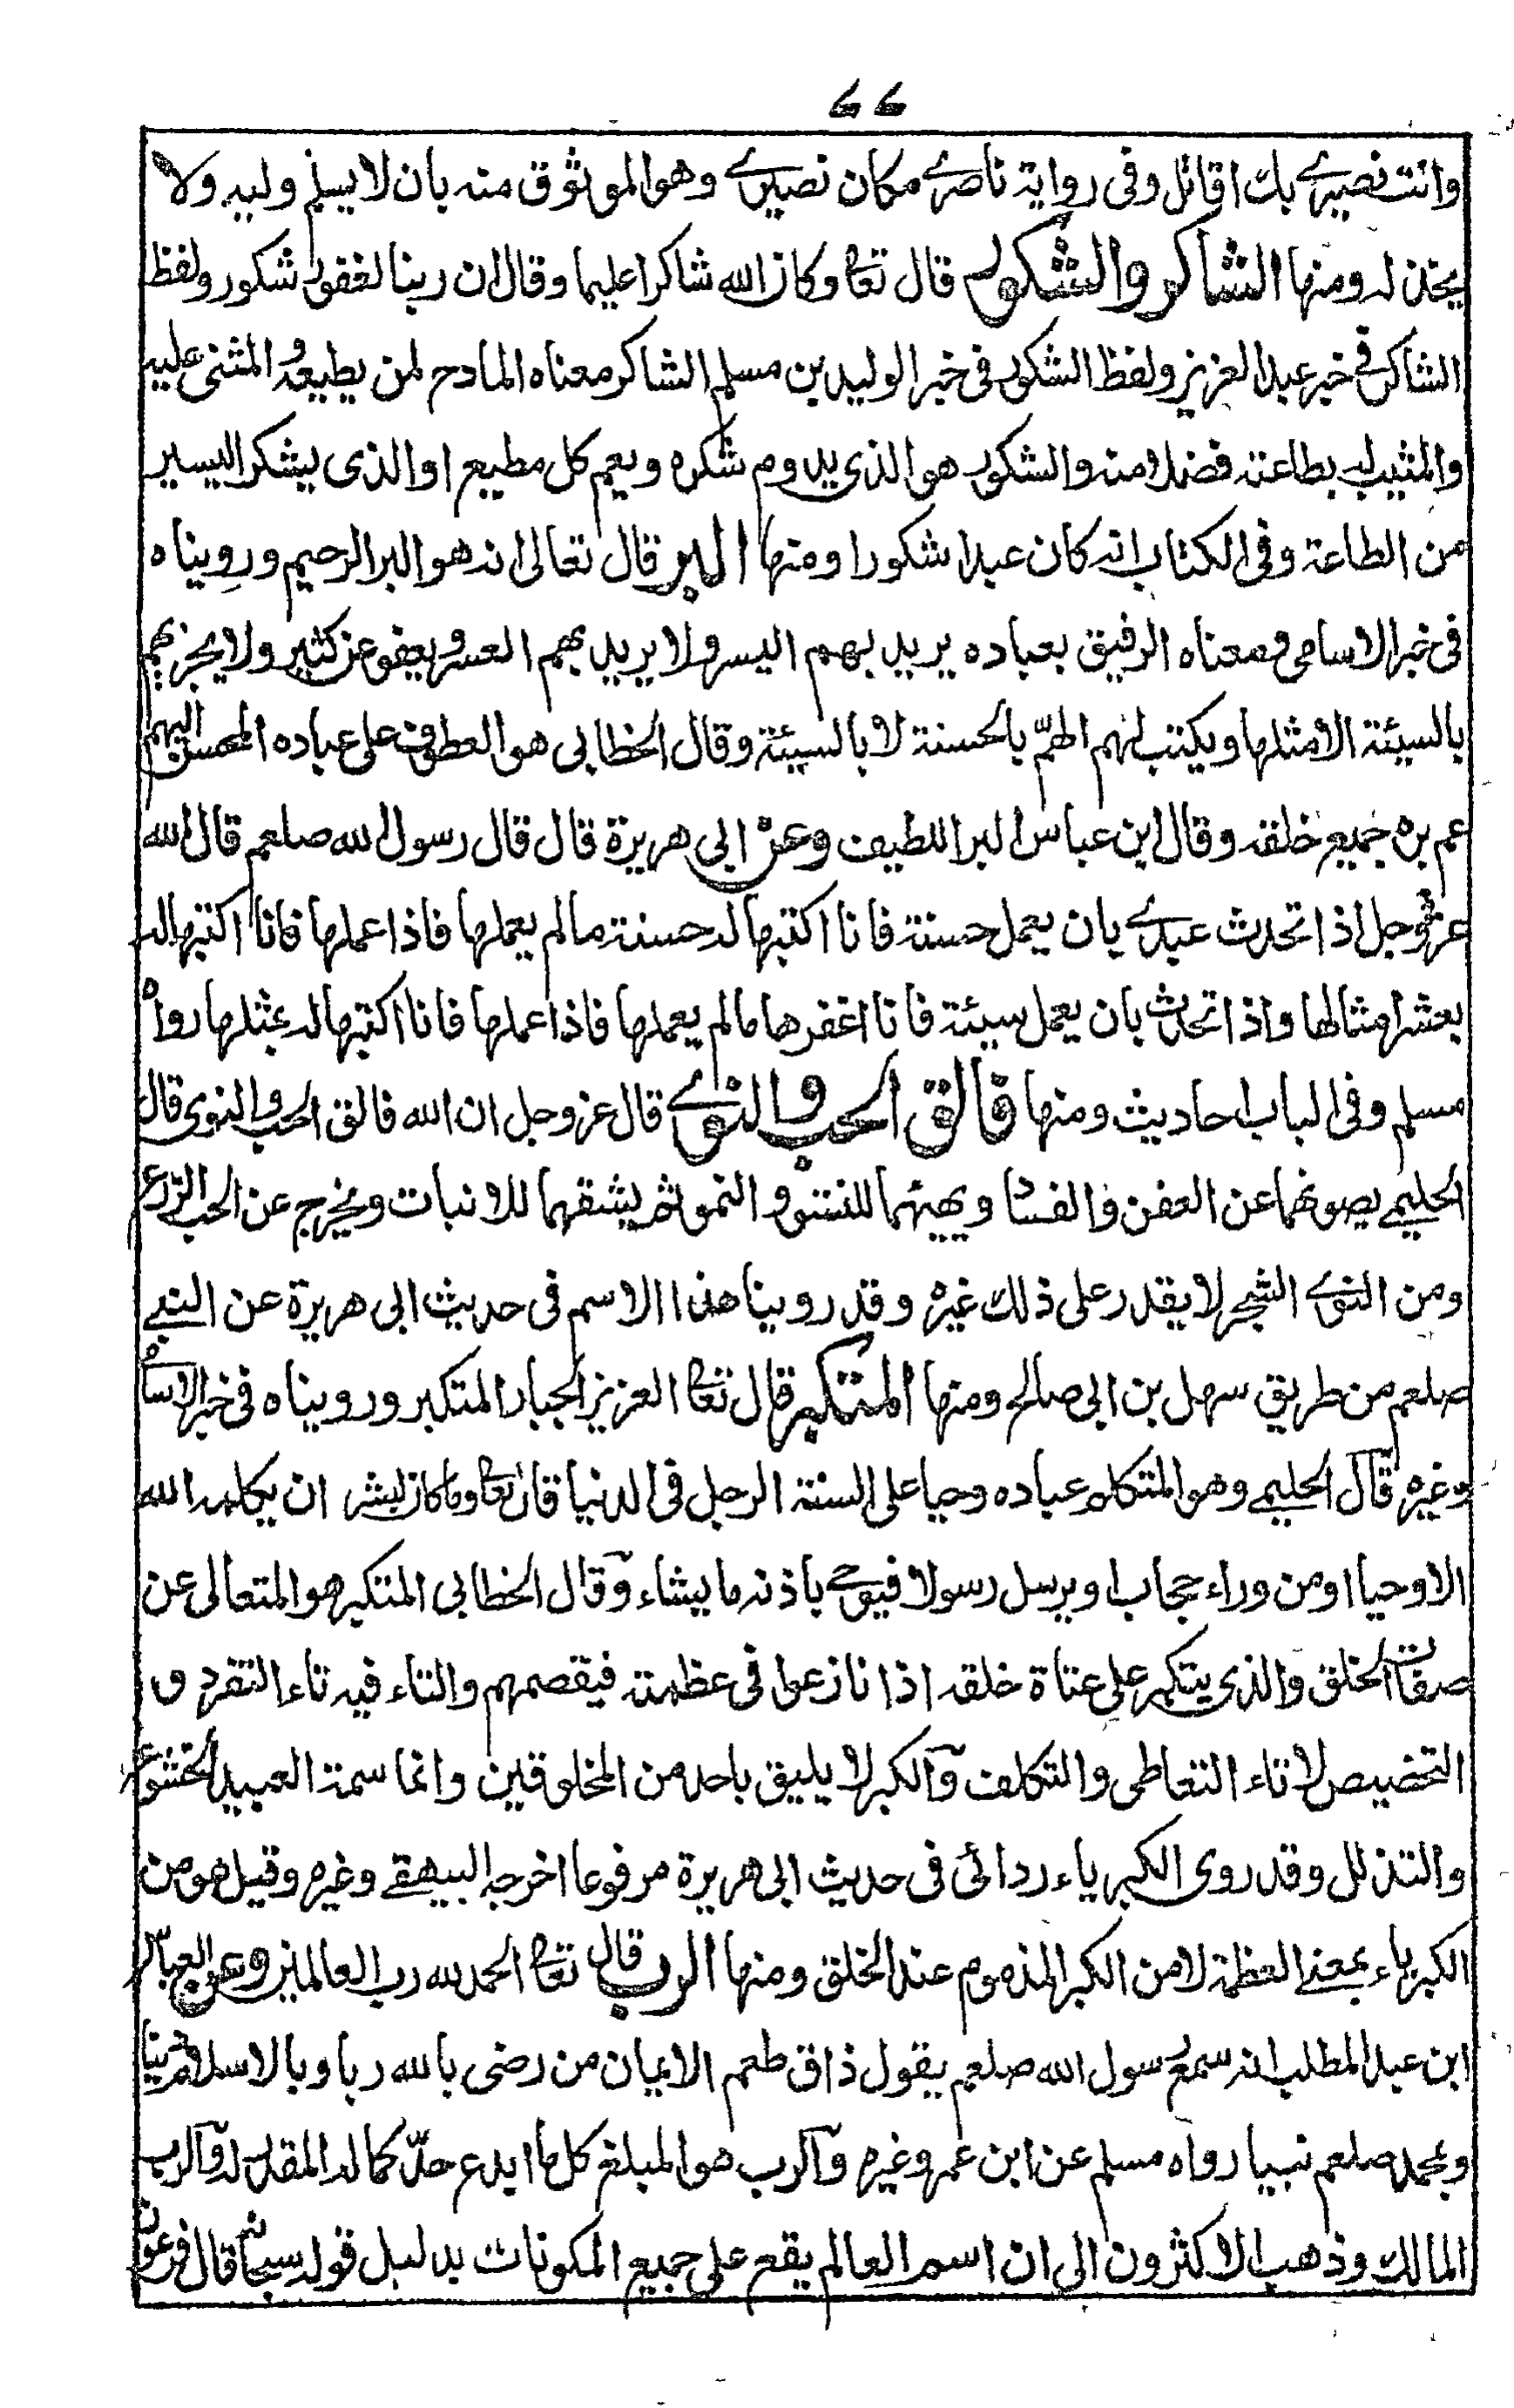 ٤٤
وانت نصيرے بك اقاتل وفى رواية ناصرے مكان نصيرے وهو الموثوق منه بان لا يسلم وليه ولا
يخذله ومنها الشاكر والشكور قال تعا وكان الله شاكرا عليما وقال ان ربنا لغفور شكور ولفظ
الشاكر فى خبر عبد العزيز ولفظ الشكور فى خبر الوليد بن مسلم الشاكر معناه المادح لمن يطيعه والمثنى عليه
والمثيب له بطاعته فضلا منه والشكور هو الذى يدوم شكره ويعم كل مطيع او الذى يشكر اليسير
من الطاعة وفى الكتاب انه كان عبدا شكورا ومنها البر قال تعالى انه هو البر الرحيم ورويناه
فى خبر الاسامى ومعناه الرفيق بعباده يريد بهم اليسر ولا يريد بهم العسر ويعفو عن كثير ولا يجزيهم
بالسيئة الا مثلها ويكتب لهم الهمّ بالحسنة لا بالسيئة وقال الخطابى هو العطوف على عباده المحسن اليهم
عم بره جميع خلقه وقال ابن عباس البر اللطيف وعن ابى هريرة قال قال رسول الله صلعم قال الله
عز وجل اذا تحدث عبدے بان يعمل حسنة فانا اكتبها له حسنة مالم يعملها فاذا عملها فانا اكتبها له
بعشر امثالها واذا تحدث بان يعمل سيئة فانا اغفرها مالم يعملها فاذا عملها فانا اكتبها له بمثلها رواه
مسلم وفى الباب احاديث ومنها فالق الحب والنوے قال عز وجل ان الله فالق الحب والنوى قال
الحليمے يصونهما عن العفن والفساد ويهيئهما للنشو والنمو ثم يشقهما للانبات ويخرج عن الحب الزرع
ومن النوے الشجر لا يقدر على ذلك غيره وقد روينا هذا الاسم فى حديث ابى هريرة عن النبے
صلعم من طريق سهل بن ابى صالح ومنها المتكبر قال تعا العزيز الجبار المتكبر ورويناه فى خبر الاسا
وغيره قال الحليمے وهو المتكلم عباده وحيا على السنة الرجل فى الدنيا قال تعا وما كان لبشر ان يكلمه الله
الا وحيا او من وراء حجاب او يرسل رسولا فيوحے باذنه ما يشاء وقال الخطابى المتكبر هو المتعالى عن
صفات الخلق والذى يتكبر على عتاة خلقه اذا نازعوا فى عظمته فيقصمهم والتاء فيه تاء التفرد و
التخصيص لا تاء التعاطى والتكلف والكبر لا يليق باحد من المخلوقين وانما سمة العبيد الخشوع
والتذلل وقد روى الكبرياء ردائى فى حديث ابى هريرة مرفوعا اخرجه البيهقے وغيره وقيل هو من
الكبرياء بمعنے العظمة لا من الكبر المذموم عند الخلق ومنها الرب قال تعا الحمد لله رب العالمين وعن العباس
ابن عبد المطلب انه سمع رسول الله صلعم يقول ذاق طعم الايمان من رضى بالله ربا وبالاسلام دينا
وبمحمد صلعم نبيا رواه مسلم عن ابن عمر وغيره والرب هو المبلغ كل ما ابدع حدّ كماله المقدر له والرب
المالك وذهب الاكثرون الى ان اسم العالم يقع على جميع المكونات بدليل قوله سبحانه قال فرعون